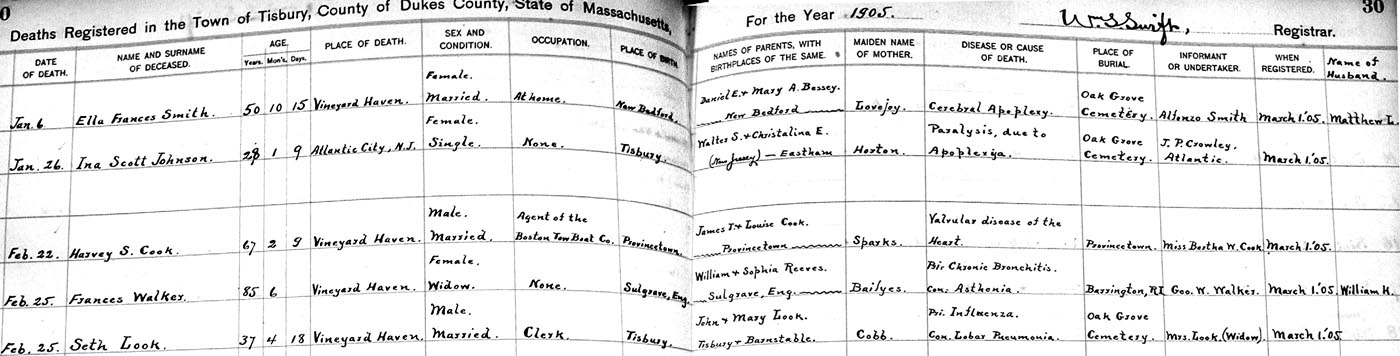 0
Deaths Registered in the Town of Tisbury, County of Dukes County, State of Massachusetts,
For the Year 1905. Wm S Swift, Registrar.
30
DATE OF DEATH. NAME AND SURNAME OF DECEASED. AGE. Years. Mon's. Days. PLACE OF DEATH. SEX AND CONDITION. OCCUPATION. PLACE OF BIRTH. NAMES OF PARENTS, WITH BIRTHPLACES OF THE SAME. MAIDEN NAME OF MOTHER. DISEASE OR CAUSE OF DEATH. PLACE OF BURIAL. INFORMANT OR UNDERTAKER. WHEN REGISTERED. Name of Husband.
Female. Daniel E. + Mary A. Bessey. Oak Grove
Jan. 6 Ella Frances Smith. 50 10 15 Vineyard Haven. Married. At home. New Bedford. New Bedford Lovejoy. Cerebral Apoplexy. Cemetery. Alfonzo Smith March 1.'05. Matthew L.
Female. Walter S. + Christalina E. Paralysis, due to Oak Grove J. P. Crowley,
Jan. 26. Ina Scott Johnson. 28 1 9 Atlantic City, N.J. Single. None. Tisbury. (New Jersey) — Eastham Horton. Apoplexija. Cemetery. Atlantic. March 1.'05.
Male. Agent of the James T. + Louise Cook. Valvular disease of the
Feb. 22. Harvey S. Cook. 67 2 9 Vineyard Haven. Married. Boston Tow Boat Co. Provincetown. Provincetown Sparks. Heart. Provincetown. Miss Bertha W. Cook March 1.'05.
Female. William + Sophia Reeves. Pri. Chronic Bronchitis.
Feb. 25. Frances Walker. 85 6 Vineyard Haven. Widow. None. Sulgrave, Eng. Sulgrave, Eng. Bailyes. Con. Asthenia. Barrington, RI Geo. W. Walker. March 1.'05 William H.
Male. John + Mary Look. Pri. Influenza. Oak Grove
Feb. 25. Seth Look. 37 4 18 Vineyard Haven. Married. Clerk. Tisbury. Tisbury + Barnstable. Cobb. Con. Lobar Pneumonia. Cemetery. Mrs. Look (Widow). March 1.'05